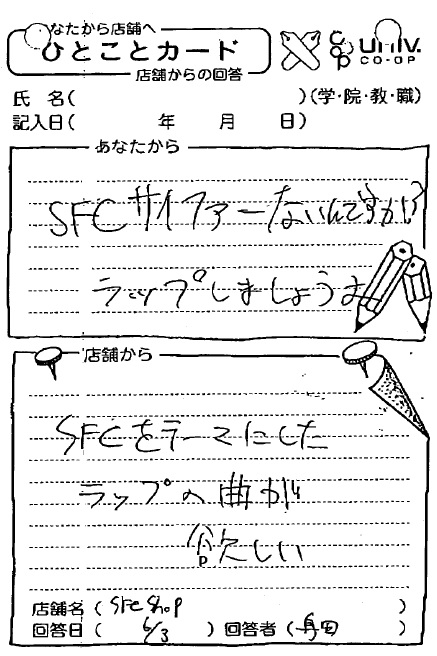 なたから店舗へ
ひとことカード
店舗からの回答
univ.
co-op
CO-OP
氏 名( )(学・院・教・職)
記入日( 年 月 日)
あなたから
SFCサイファーないんですか!?
ラップしましょうよ
店舗から
SFCをテーマにした
ラップの曲が
欲しい
店舗名 ( SFC shop )
回答日 ( 6/3 ) 回答者 ( )